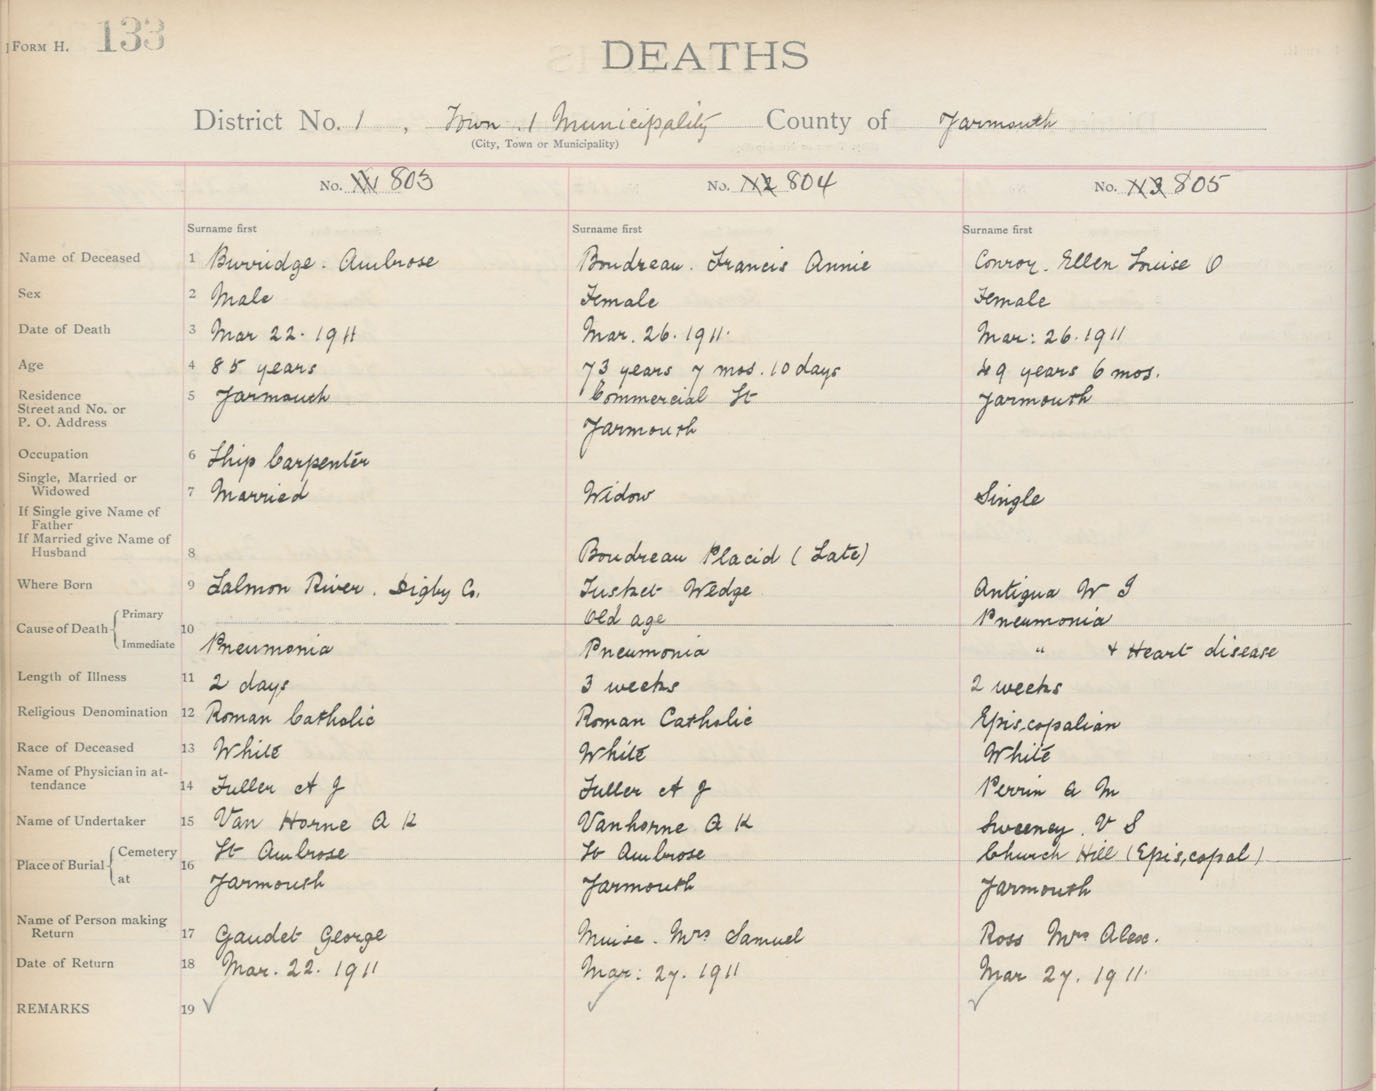 Form H. 133
DEATHS
District No. 1, Town 1 Municipality County of Yarmouth
(City, Town or Municipality)
No. 111 803 No. 112 804 No. 113 805
Surname first Surname first Surname first
Name of Deceased 1 Burridge. Ambrose Boudreau. Francis Annie Conroy. Ellen Louise O
Sex 2 Male Female Female
Date of Death 3 Mar 22. 1911 Mar. 26. 1911. Mar: 26. 1911
Age 4 85 years 73 years 7 mos. 10 days 49 years 6 mos.
Residence 5 Yarmouth Commercial St Yarmouth
Street and No. or
P. O. Address Yarmouth
Occupation 6 Ship Carpenter
Single, Married or
Widowed 7 Married Widow Single
If Single give Name of
Father
If Married give Name of
Husband 8 Boudreau Placid (Late)
Where Born 9 Salmon River. Digby Co. Tusket Wedge Antigua W I
Cause of Death Primary 10 Old age Pneumonia
Immediate Pneumonia Pneumonia " + Heart disease
Length of Illness 11 2 days 3 weeks 2 weeks
Religious Denomination 12 Roman Catholic Roman Catholic Episcopalian
Race of Deceased 13 White White White
Name of Physician in at-
tendance 14 Fuller A J Fuller A J Perrin A M
Name of Undertaker 15 Van Horne A K Vanhorne A K Sweeney. V S
Place of Burial Cemetery 16 St Ambrose St Ambrose Church Hill (Episcopal)
at Yarmouth Yarmouth Yarmouth
Name of Person making
Return 17 Gaudet George Muise. Mrs Samuel Ross Mrs Alex.
Date of Return 18 Mar. 22. 1911 Mar: 27. 1911 Mar 27. 1911.
REMARKS 19 ✓ ✓ ✓